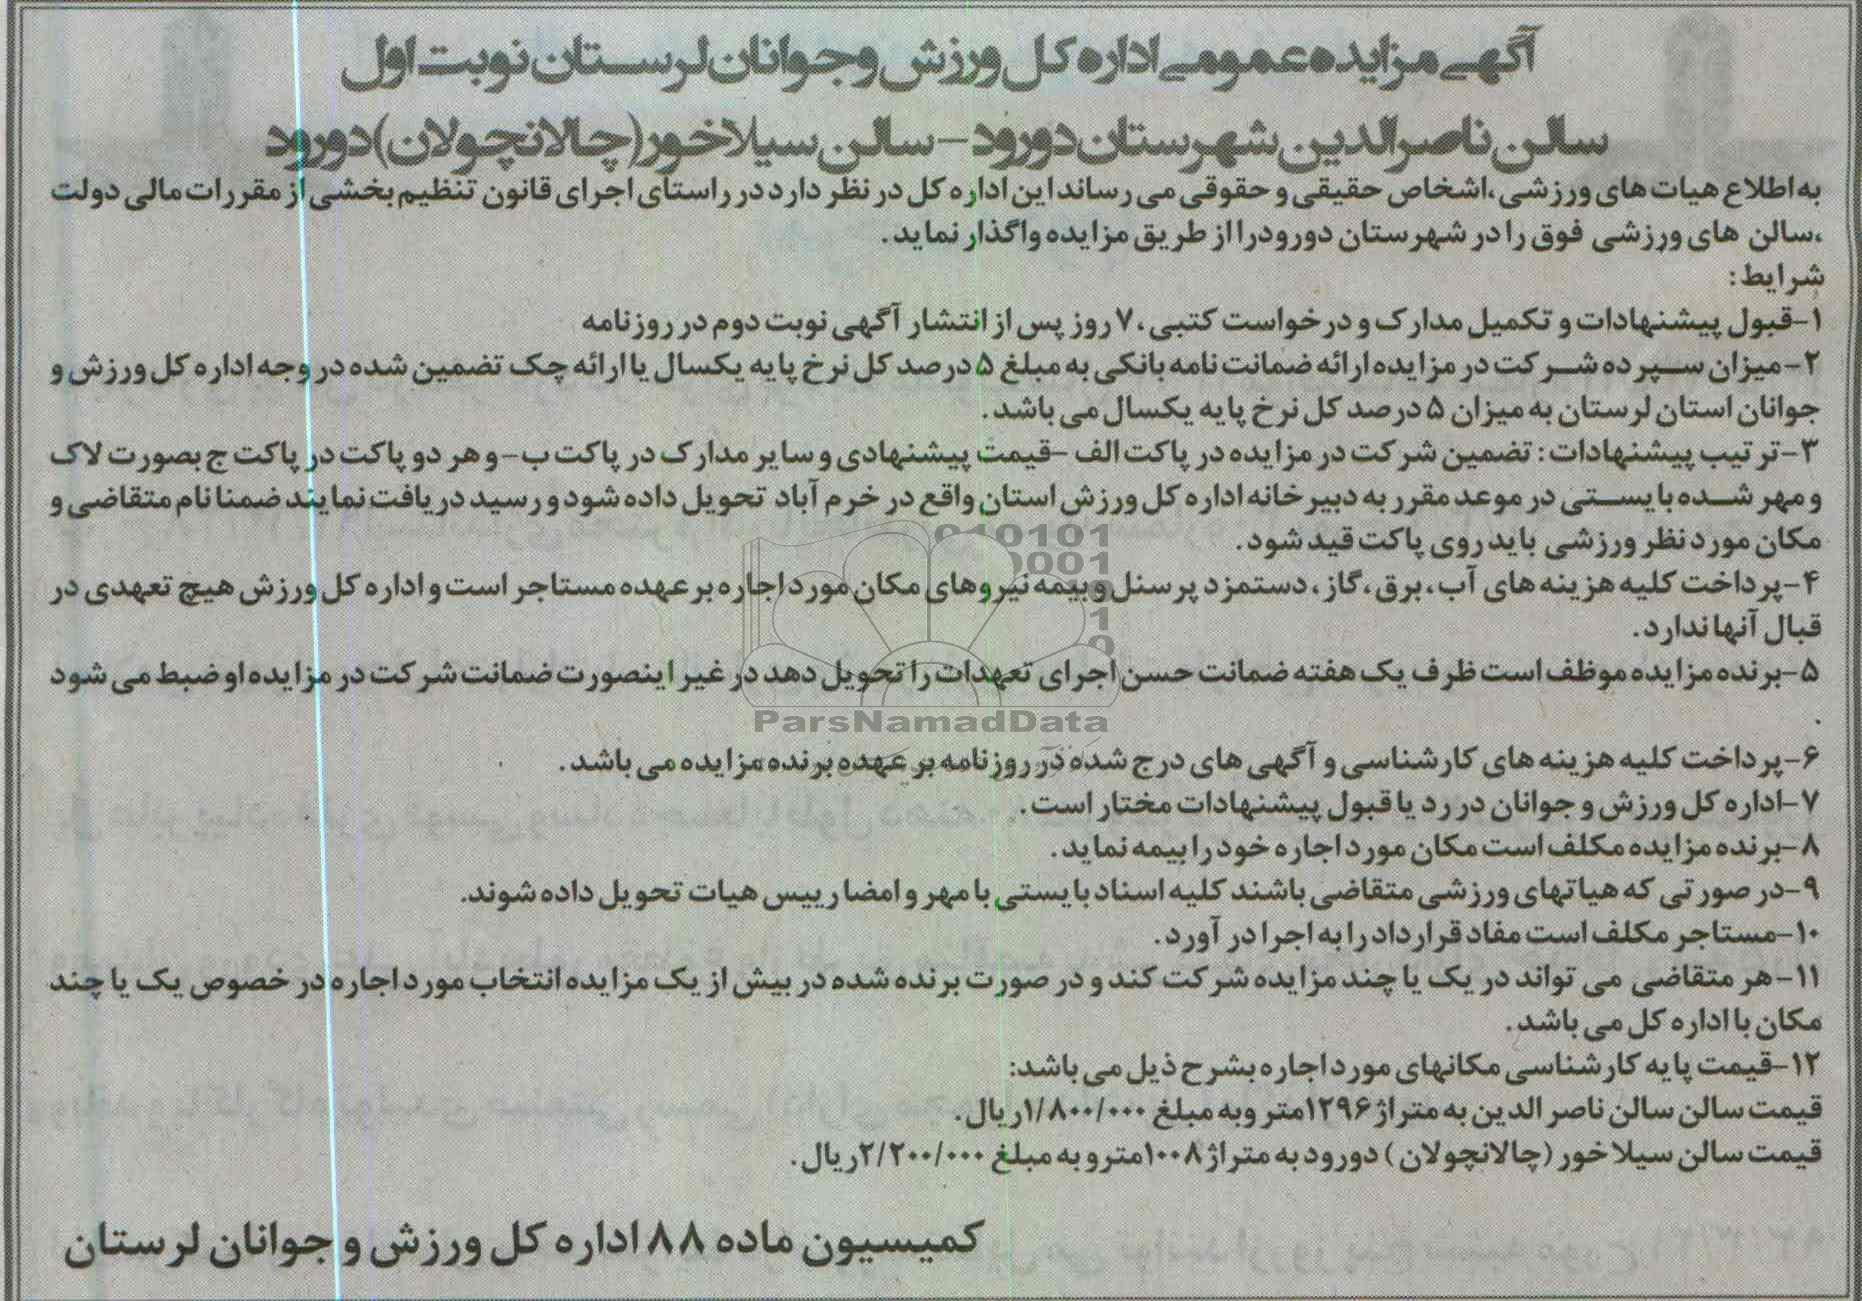 آگهی مزایده عمومی اداره کل ورزش و جوانان لرستان نوبت اول
سالن ناصرالدین شهرستان دورود - سالن سیلاخور (چالانچولان) دورود
به اطلاع هیات های ورزشی ،اشخاص حقیقی و حقوقی می رساند این اداره کل در نظر دارد در راستای اجرای قانون تنظیم بخشی از مقررات مالی دولت
،سالن های ورزشی فوق را در شهرستان دورود را از طریق مزایده واگذار نماید.
شرایط:
۱-قبول پیشنهادات و تکمیل مدارک و درخواست کتبی ،۷ روز پس از انتشار آگهی نوبت دوم در روزنامه
۲-میزان سپرده شرکت در مزایده ارائه ضمانت نامه بانکی به مبلغ ۵ درصد کل نرخ پایه یکسال یا ارائه چک تضمین شده در وجه اداره کل ورزش و
جوانان استان لرستان به میزان ۵ درصد کل نرخ پایه یکسال می باشد.
۳-ترتیب پیشنهادات: تضمین شرکت در مزایده در پاکت الف -قیمت پیشنهادی و سایر مدارک در پاکت ب-و هر دو پاکت در پاکت ج بصورت لاک
و مهر شده بایستی در موعد مقرر به دبیرخانه اداره کل ورزش استان واقع در خرم آباد تحویل داده شود و رسید دریافت نمایند ضمنا نام متقاضی و
مکان مورد نظر ورزشی باید روی پاکت قید شود.
010101
0001
۴-پرداخت کلیه هزینه های آب ،برق ،گاز ، دستمزد پرسنل و بیمه نیروهای مکان مورد اجاره بر عهده مستاجر است و اداره کل ورزش هیچ تعهدی در
قبال آنها ندارد.
۵-برنده مزایده موظف است ظرف یک هفته ضمانت حسن اجرای تعهدات را تحویل دهد در غیر اینصورت ضمانت شرکت در مزایده او ضبط می شود
.
ParsNamadData
۶-پرداخت کلیه هزینه های کارشناسی و آگهی های درج شده در روزنامه بر عهده برنده مزایده می باشد.
۷-اداره کل ورزش و جوانان در رد یا قبول پیشنهادات مختار است.
۸-برنده مزایده مکلف است مکان مورد اجاره خود را بیمه نماید.
۹-در صورتی که هیاتهای ورزشی متقاضی باشند کلیه اسناد بایستی با مهر و امضا رییس هیات تحویل داده شوند.
۱۰-مستاجر مکلف است مفاد قرارداد را به اجرا در آورد.
۱۱-هر متقاضی می تواند در یک یا چند مزایده شرکت کند و در صورت برنده شده در بیش از یک مزایده انتخاب مورد اجاره در خصوص یک یا چند
مکان با اداره کل می باشد.
۱۲-قیمت پایه کارشناسی مکانهای مورد اجاره بشرح ذیل می باشد:
قیمت سالن سالن ناصر الدین به متراژ ۱۲۹۶متر وبه مبلغ ۱/۸۰۰/۰۰۰ریال.
قیمت سالن سیلاخور (چالانچولان ) دورود به متراژ ۱۰۰۸متر و به مبلغ ۲/۲۰۰/۰۰۰ریال.
کمیسیون ماده ۸۸ اداره کل ورزش و جوانان لرستان